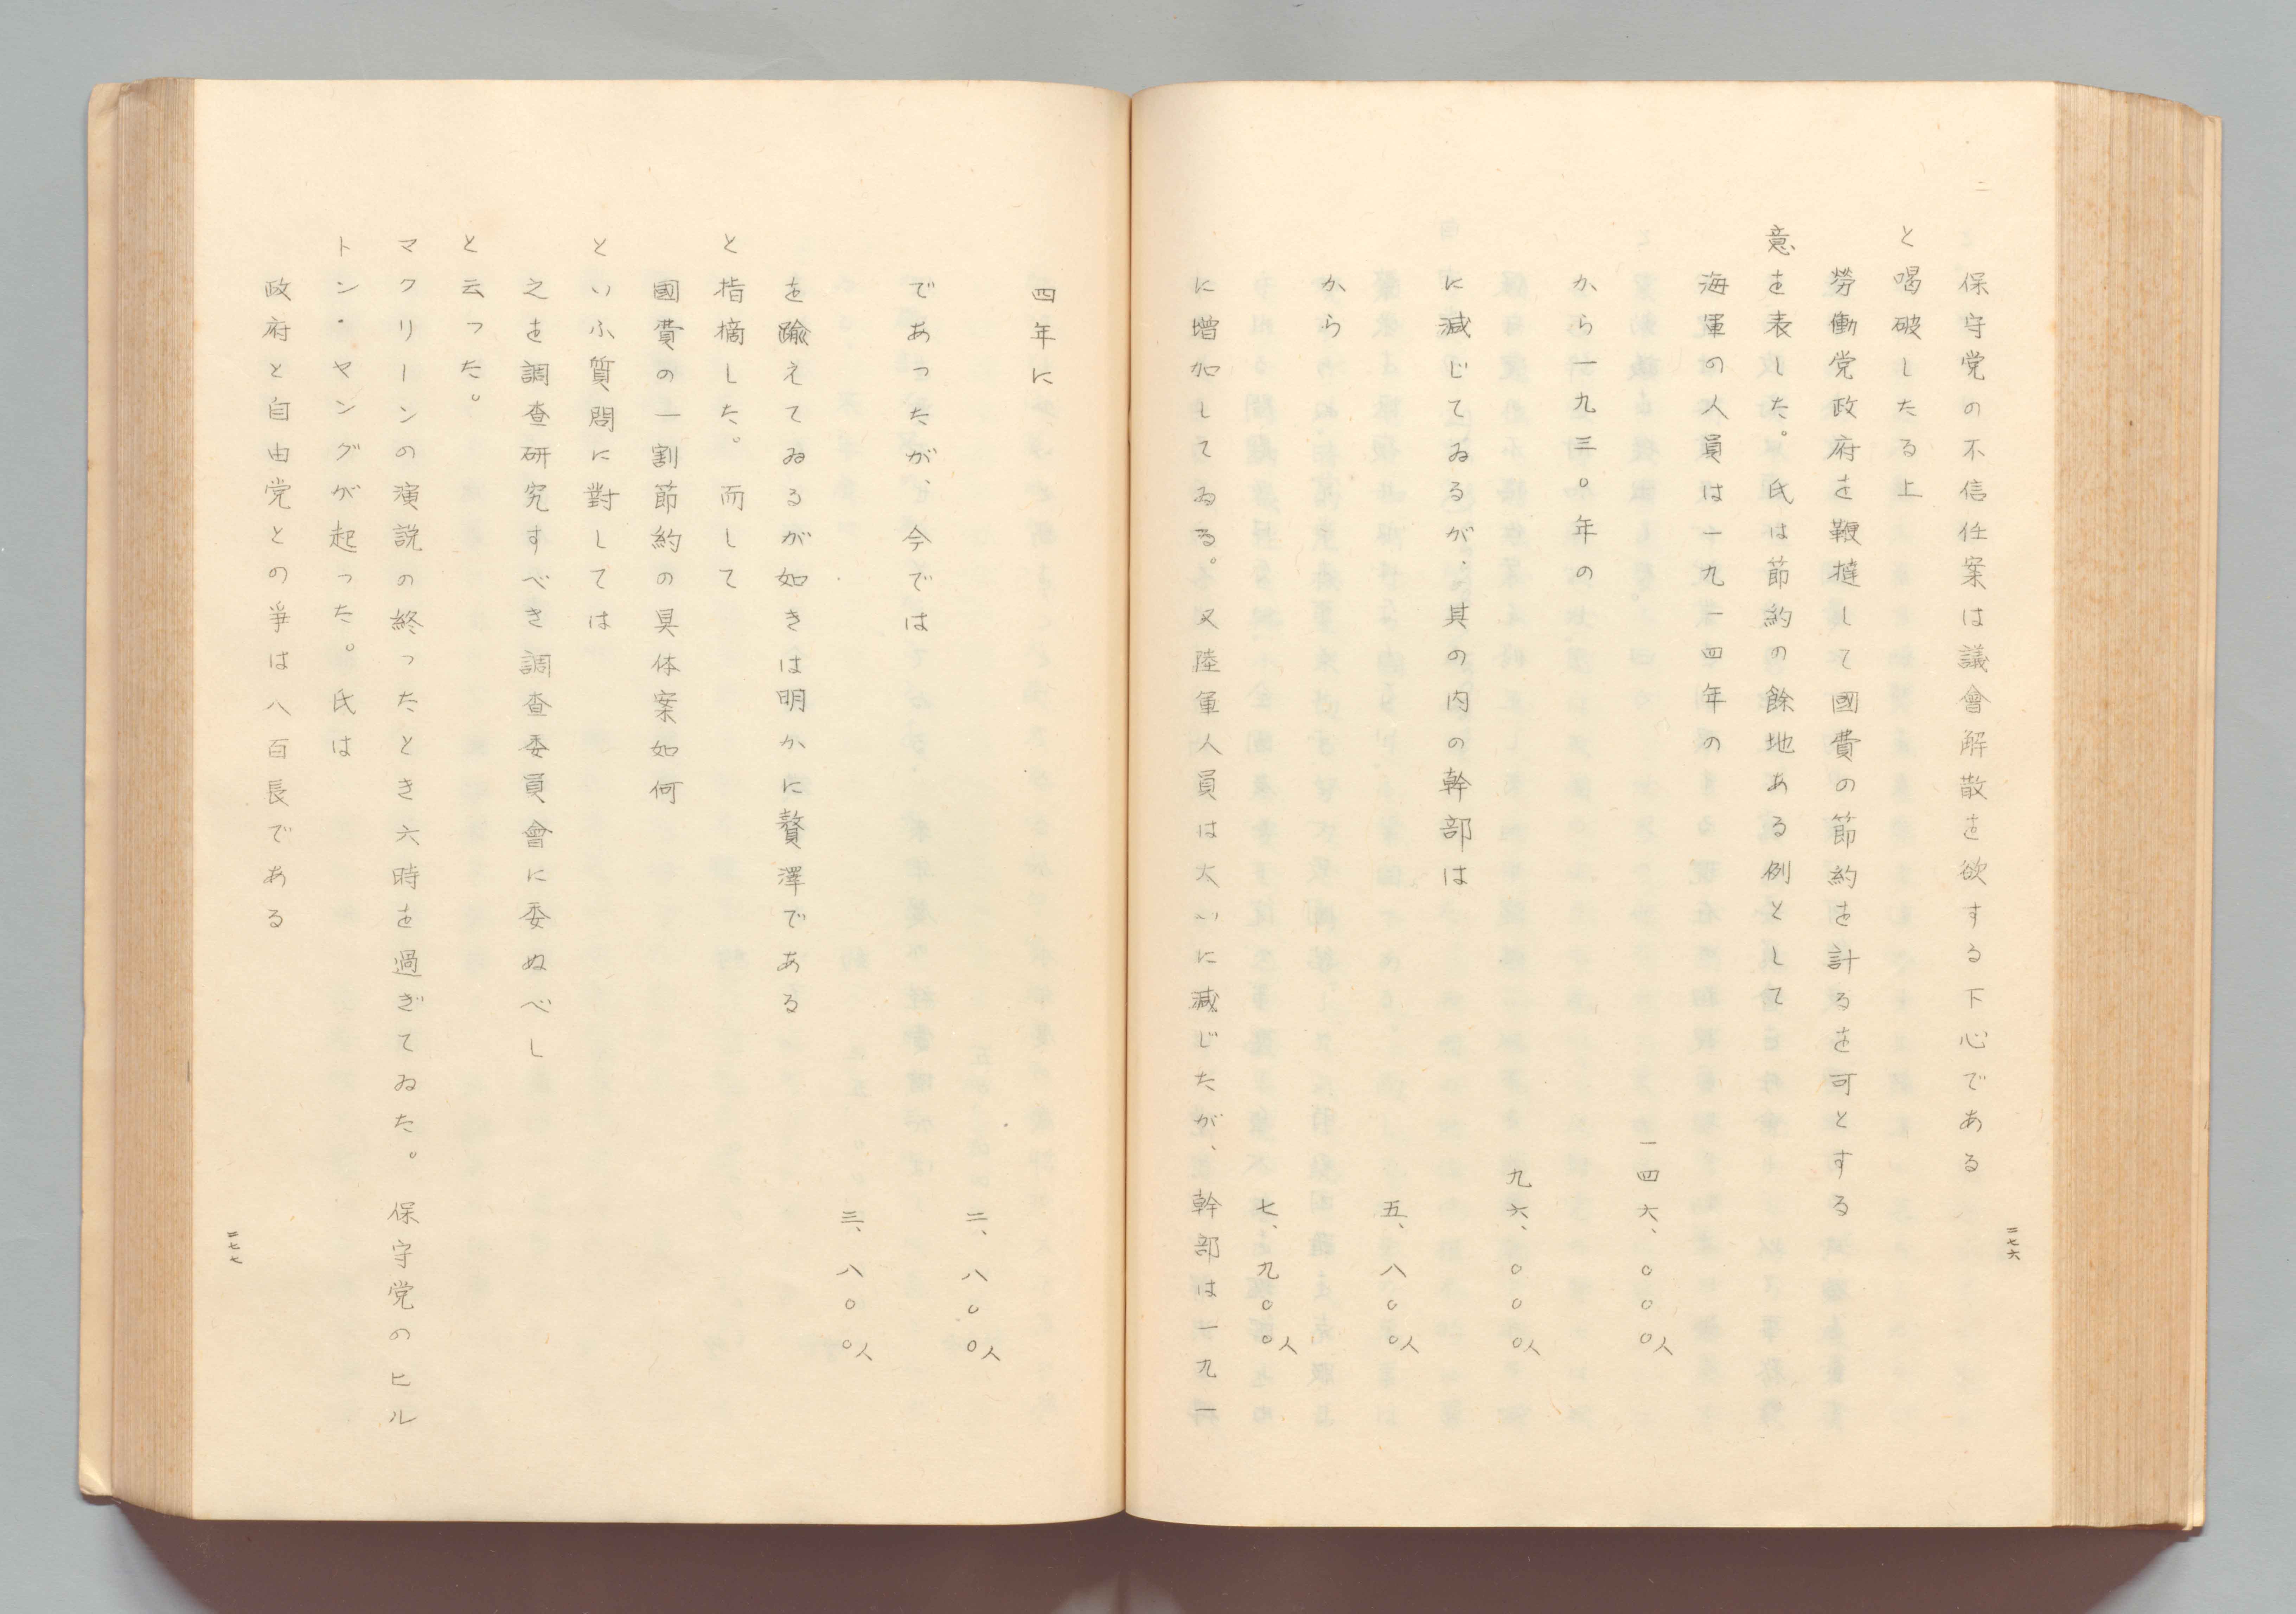 保守党の不信任案は議會解散を欲する下心である
と喝破したる上
勞働党政府を鞭撻して國費の節約を計るを可とする
意を表した。氏は節約の餘地ある例として
海軍の人員は一九一四年の
一四六、〇〇〇人
から一九三〇年の
九六、〇〇〇人
に減じてゐるが、其の内の幹部は
五、八〇〇人
から
七、九〇〇人
に増加してゐる。又陸軍人員は大いに減じたが、幹部は一九一
二七六
四年に
二、八〇〇人
であったが、今では
三、八〇〇人
を踰えてゐるが如きは明かに贅澤である
と指摘した。而して
國費の一割節約の具体案如何
といふ質問に對しては
之を調査研究すべき調査委員會に委ぬべし
と云った。
マクリーンの演説の終ったとき六時を過ぎてゐた。保守党のヒル
トン・ヤングが起った。氏は
政府と自由党との爭は八百長である
二七七